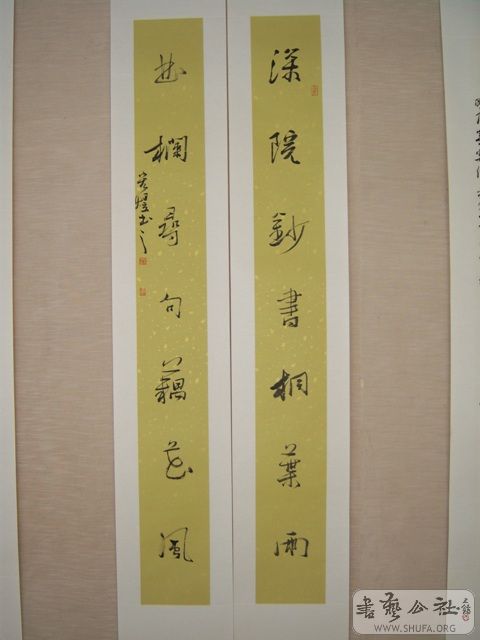 深院鈔書桐葉雨
曲欄尋句藕花風
書藝公社
WWW.SHUFA.ORG